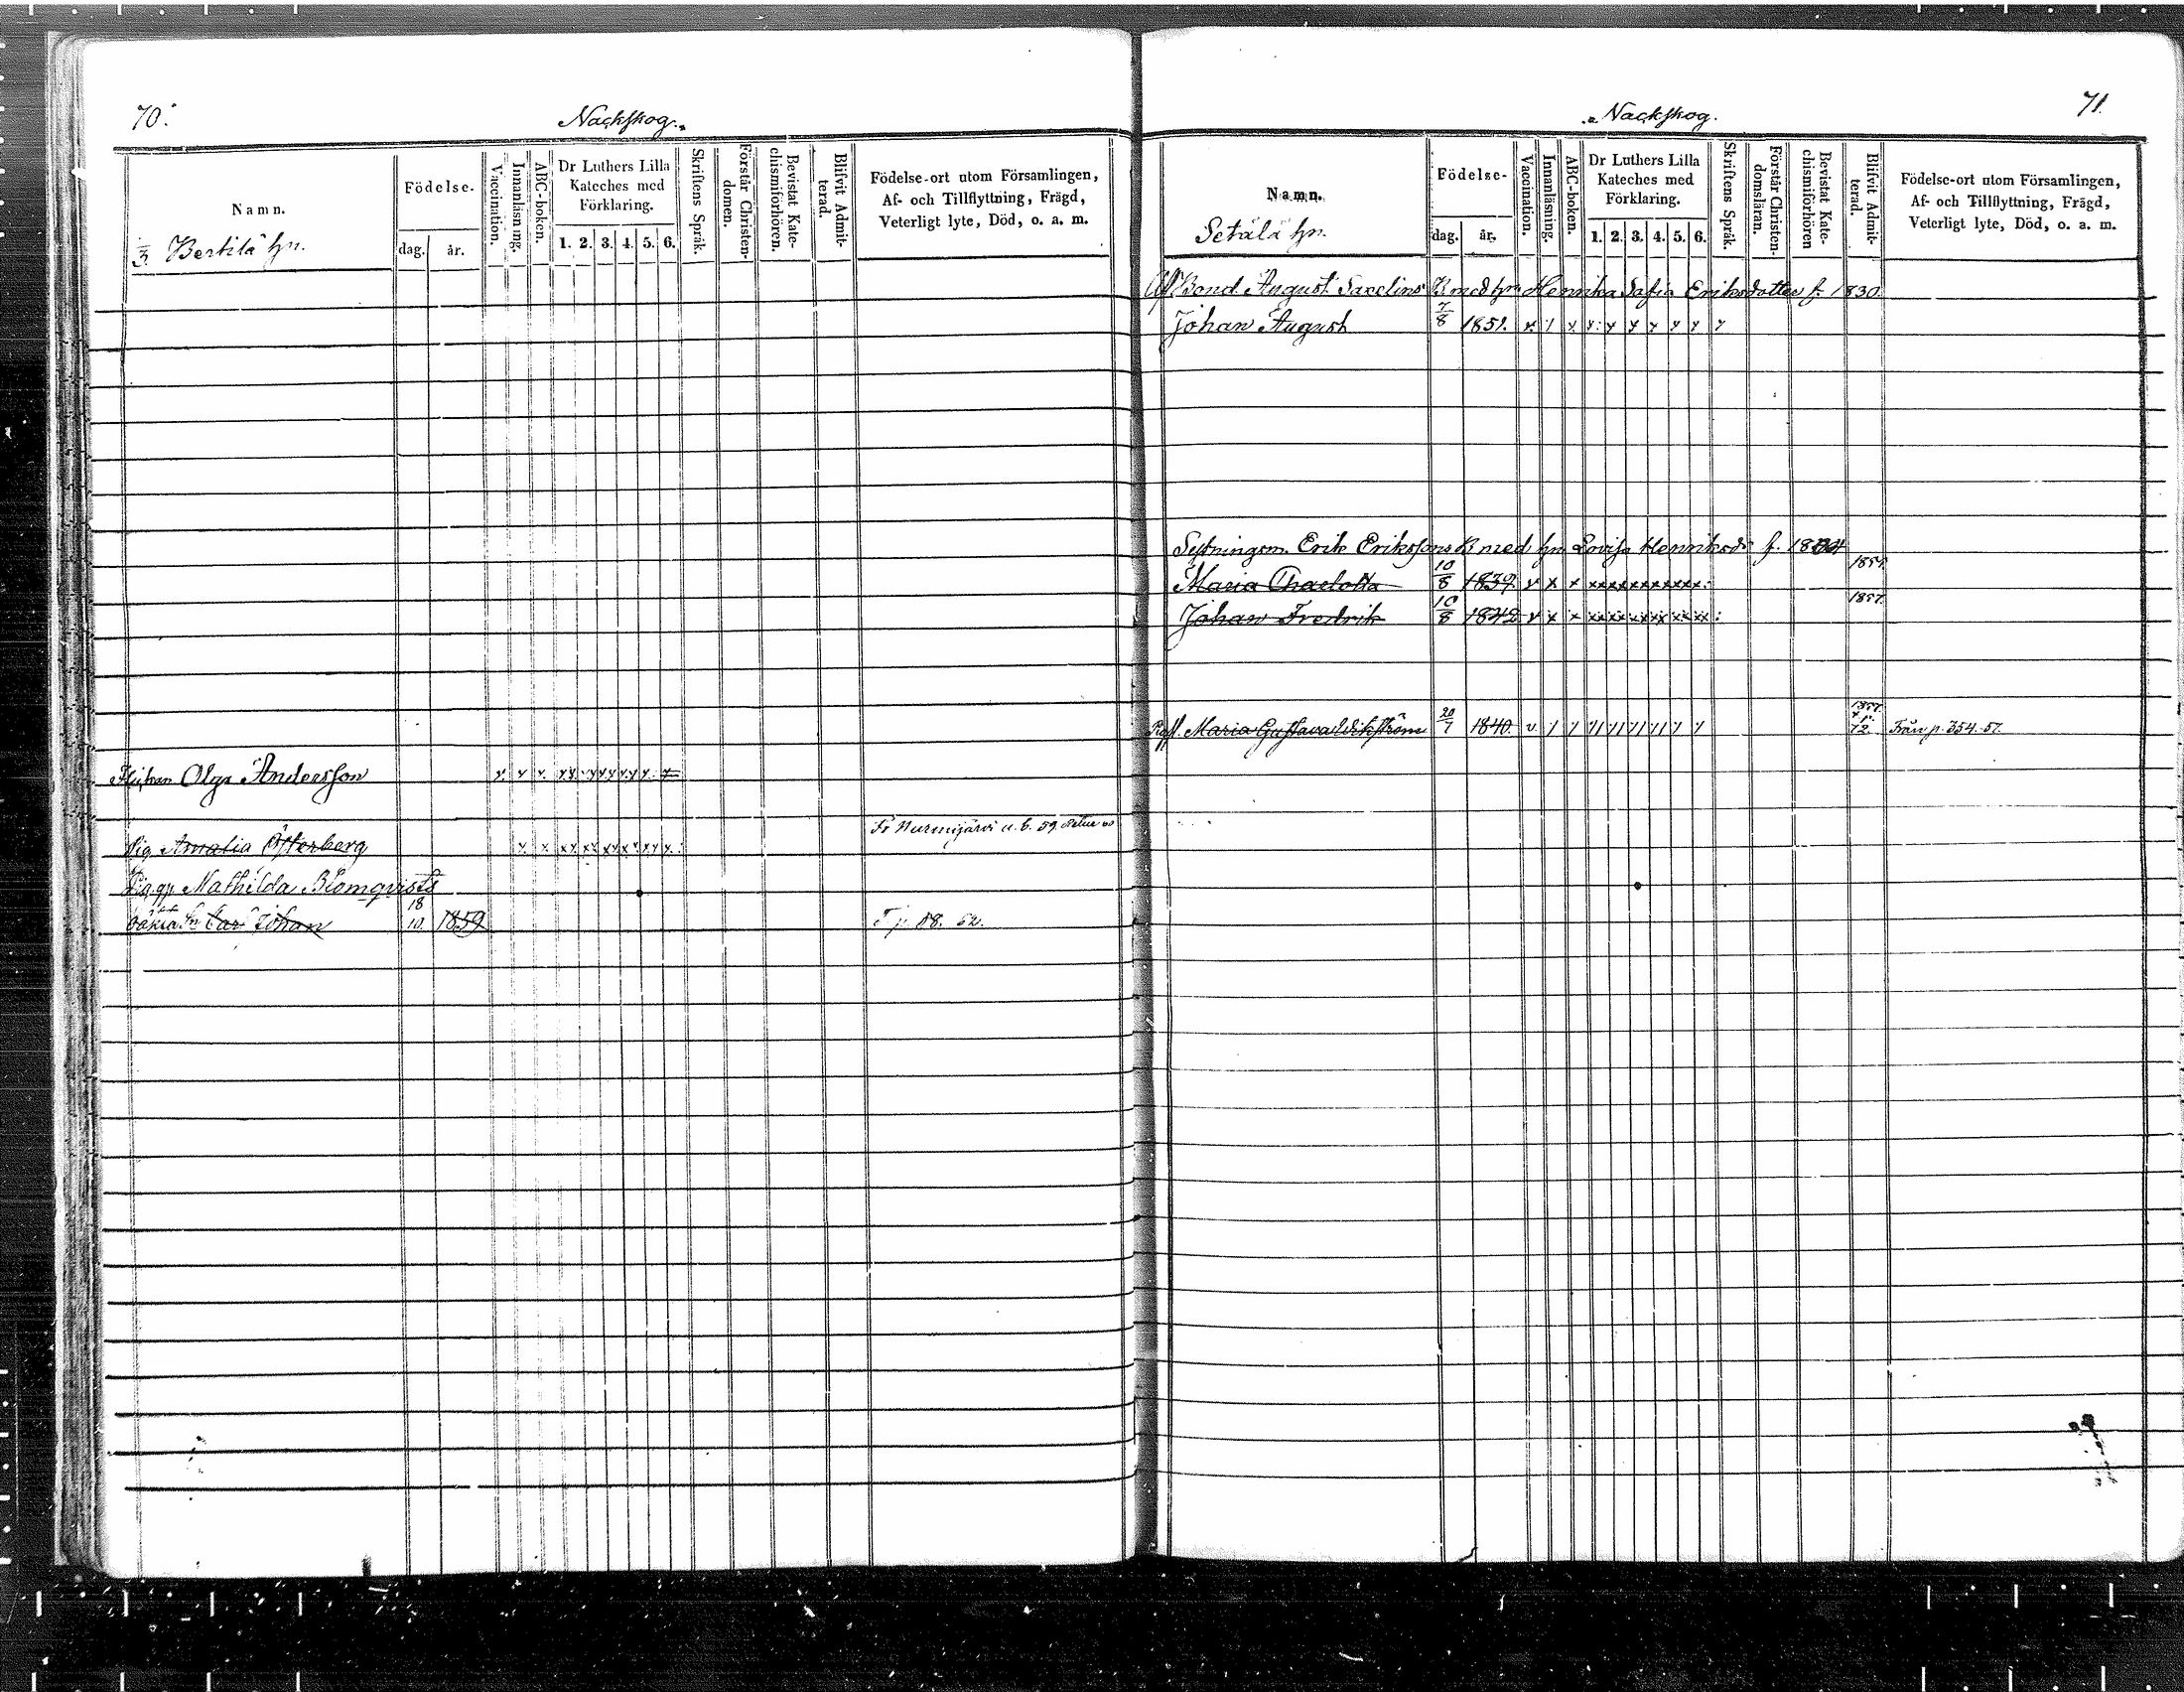 70.
Nackskog.
Namn.
Födelse.
dag. år.
Vaccination.
Innanläsning.
ABC-boken.
Dr Luthers Lilla
Kateches med
Förklaring.
1. 2. 3. 4. 5. 6.
Skriftens Språk.
Förstår Christen-
domen.
Bevistat Kate-
chismiförhören.
Blifvit Admit-
terad.
Födelse-ort utom Församlingen,
Af- och Tillflyttning, Frägd,
Veterligt lyte, Död, o. a. m.
3. Bertilä hn.
Olga Andersson x x x xx xxxxxx x x
Fr Nurmijärvi u. b. 59
Pig. Amalia Österberg x x xx xx xxxx xx x
Pig. Mathilda Blomqvists
oäkta Sn Carl Johan 18/10 1859 T p. 88. 62.
71.
Nackskog.
Namn.
Födelse-
dag. år.
Vaccination.
Innanläsning.
ABC-boken.
Dr Luthers Lilla
Kateches med
Förklaring.
1. 2. 3. 4. 5. 6.
Skriftens Språk.
Förstår Christen-
domsläran.
Bevistat Kate-
chismiförhören
Blifvit Admit-
terad.
Födelse-ort utom Församlingen,
Af- och Tillflyttning, Frägd,
Veterligt lyte, Död, o. a. m.
Setälä hn.
Bond. August Saxelins B med hn Henrika Sofia Eriksdotter f. 1830.
Johan August 7/8 1851. x / x x x x x x x x
Sextningsm. Erik Erikssons B med hn Lovisa Henriksdr f.
Maria Charlotta 10/8 1839 v x x xxxxxxxxxxx
Johan Fredrik 10/8 1842 v x x xx xx xxxx xx xx 1857.
Maria Gustava Wikström 20/7 1840. v / / // // // // / / 1857. Från p. 354. 57.